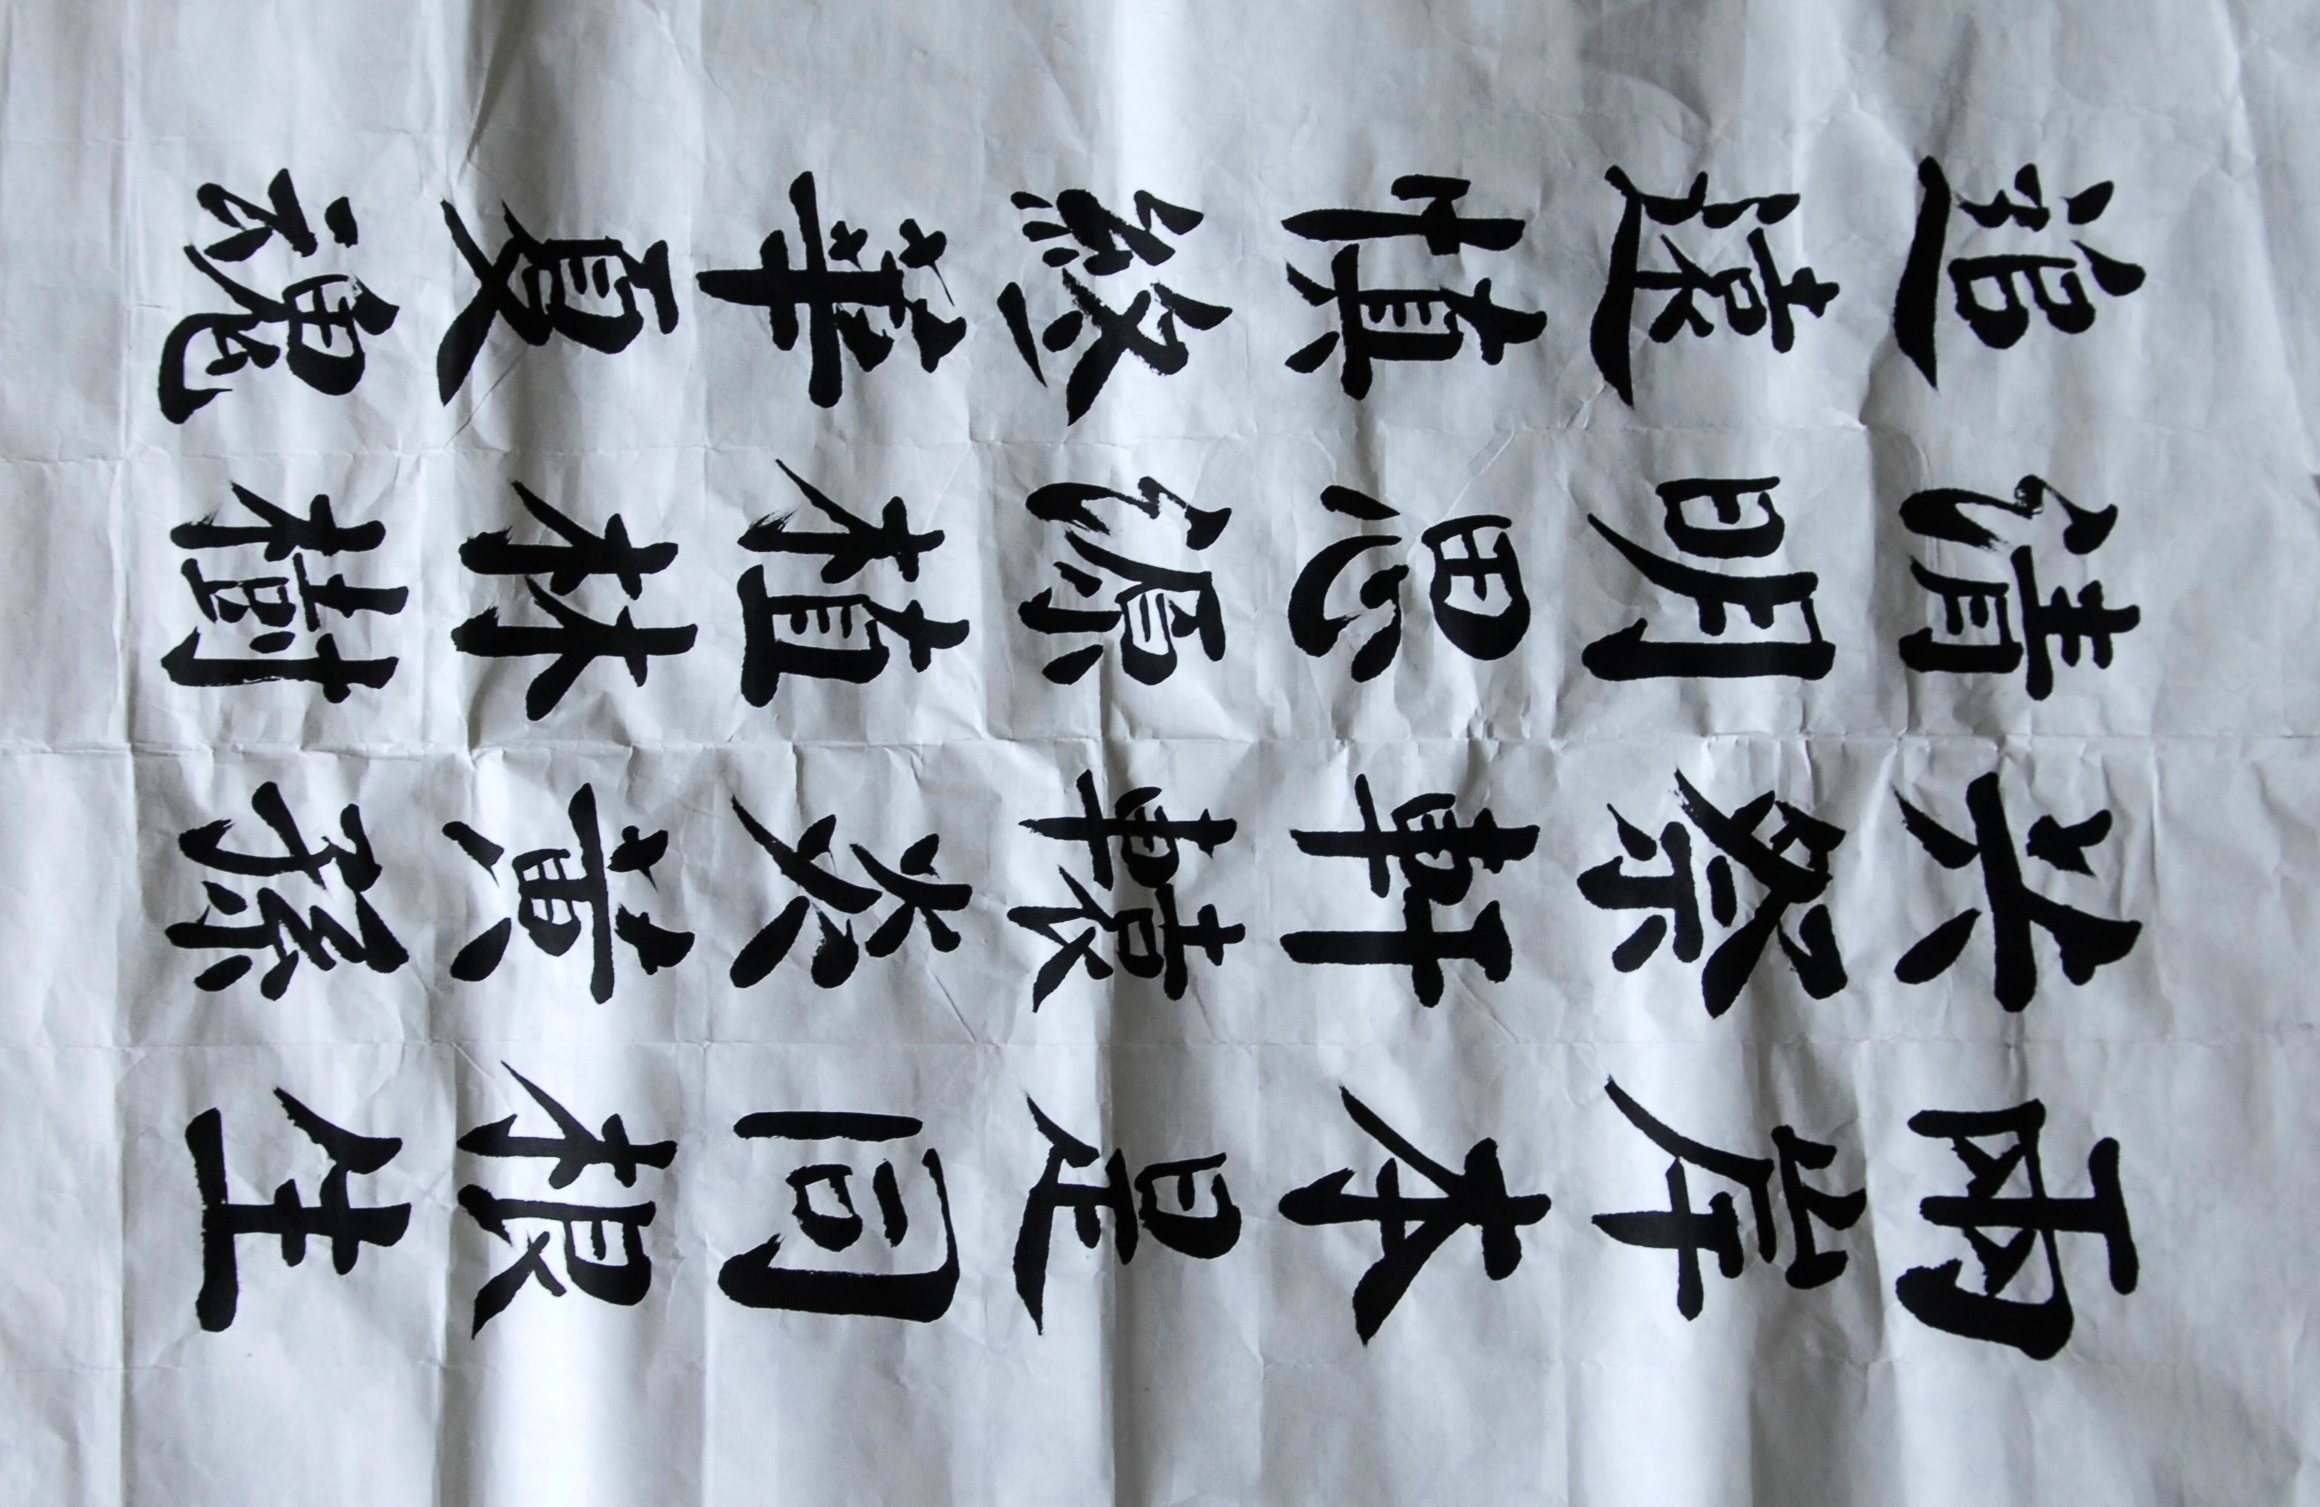 兩岸本是同根生
共祭軒轅炎黃孫
清明思源植林樹
追遠慎終華夏魂